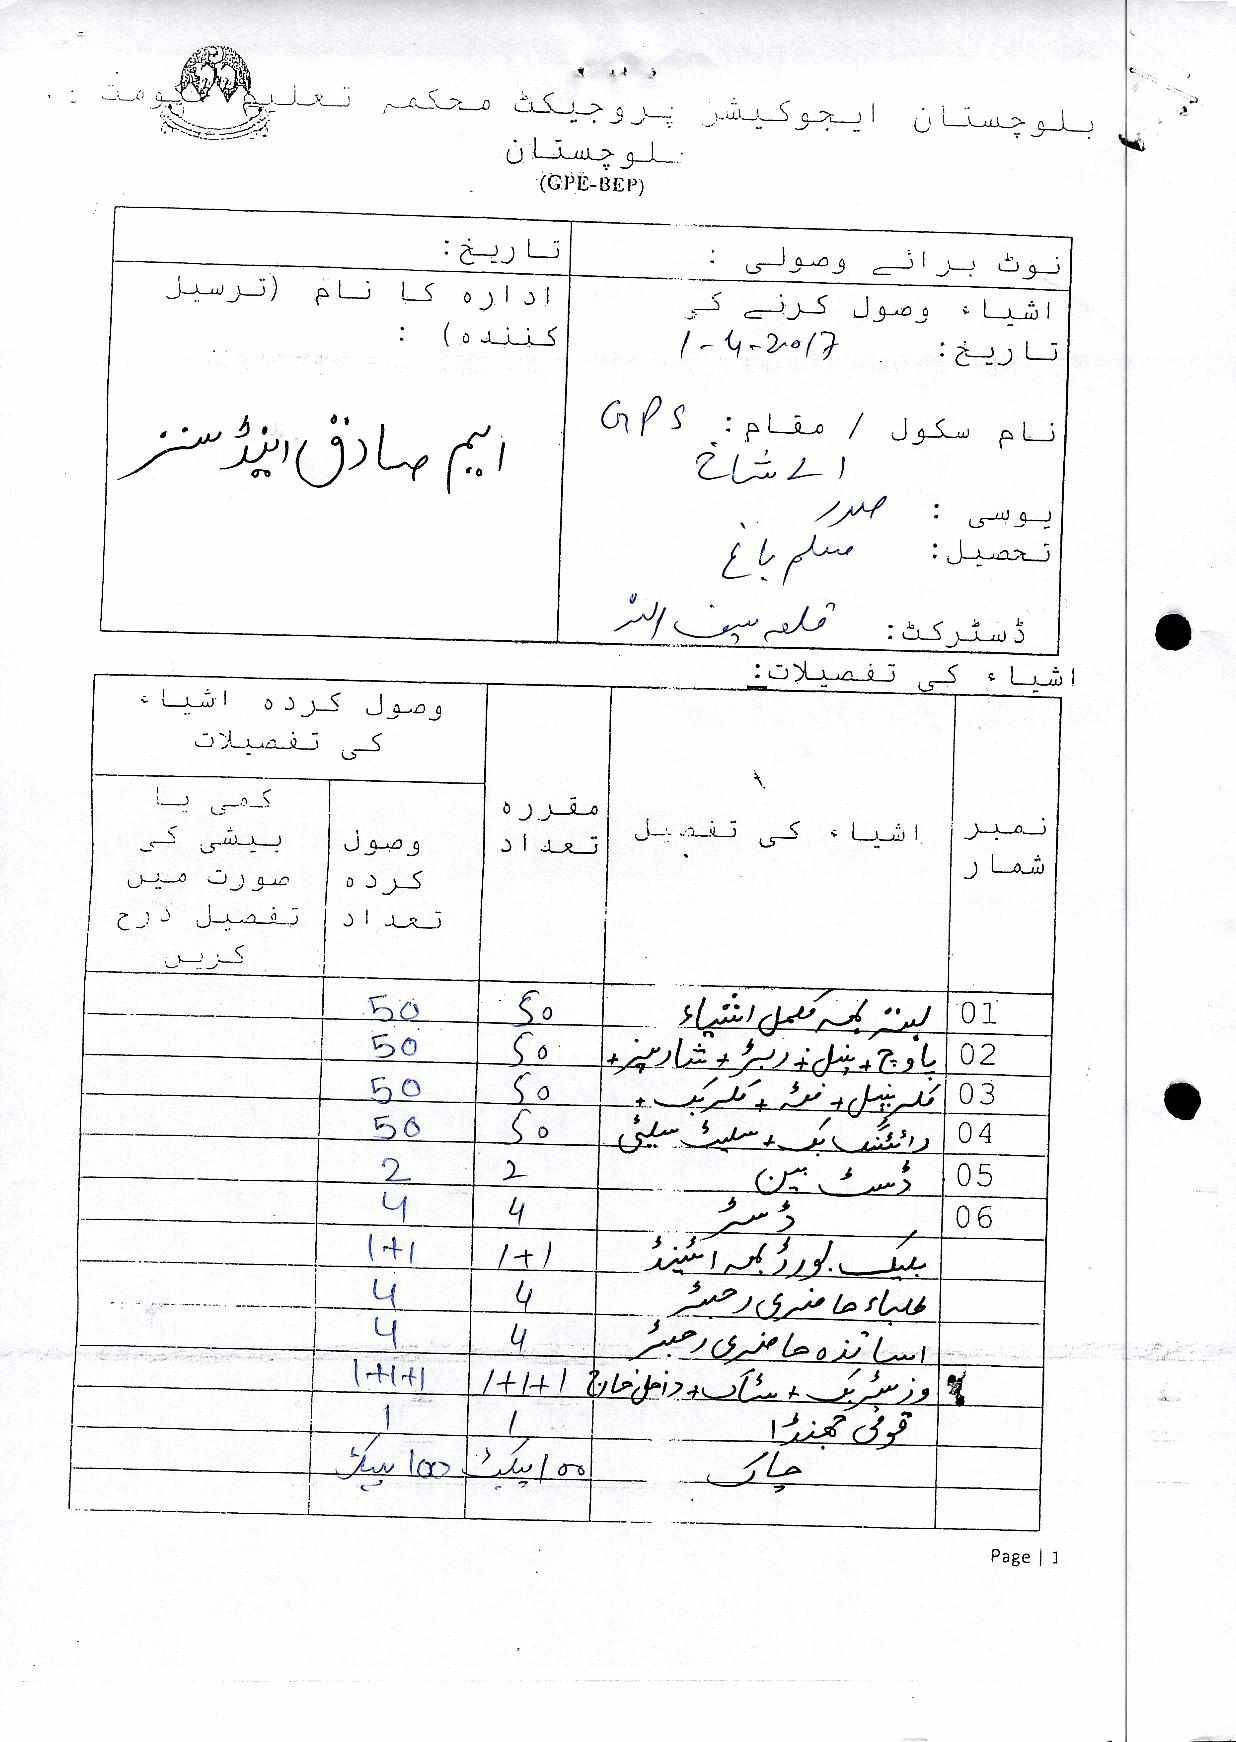 بلوچستان ایجوکیشن پروجیکٹ محکمہ تعلیم حکومت
بلوچستان
(GPE-BEP)
نوٹ برائے وصولی :
تاریخ:
اشیاء وصول کرنے کی
تاریخ: 1-4-2017
نام سکول / مقام: GPS
شاخ
یوسی : صدر
تحصیل: مسلم باغ
ڈسٹرکٹ: قلعہ سیف اللہ
ادارہ کا نام (ترسیل
کنندہ) :
ایم صادق اینڈ سنز
اشیاء کی تفصیلات:
نمبر شمار
اشیاء کی تفصیل
مقررہ تعداد
وصول کردہ اشیاء کی تفصیلات
وصول کردہ تعداد
کمی یا بیشی کی صورت میں تفصیل درج کریں
01 بستہ بمعہ مکمل اشیاء 50 50
02 پاوچ + پنسل + ربڑ + شارپنر + 50 50
03 کلر پنسل + فٹہ + کلر بک + 50 50
04 رائٹنگ بک + سلیٹ سلیٹی 50 50
05 ڈسٹ بین 2 2
06 ڈسٹر 4 4
بلیک بورڈ بمعہ اسٹینڈ 1+1 1+1
طلباء حاضری رجسٹر 4 4
اساتذہ حاضری رجسٹر 4 4
وزیٹر بک + سٹاک + داخل خارج 1+1+1 1+1+1
قومی جھنڈا 1 1
چاک 100 پیکٹ 100 پیکٹ
Page | 1